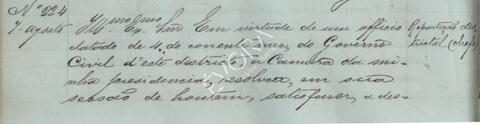 Nº 224
7 agosto Illmo Exmo Snr Em virtude de um officio Repartição dis-
datado de 4 do corrente mez, do Governo trictal (chefe)
Civil d'este districto á Camara da mi-
nha presidencia, resolveu, em sua
sessão de hontem, satisfazer, a des-